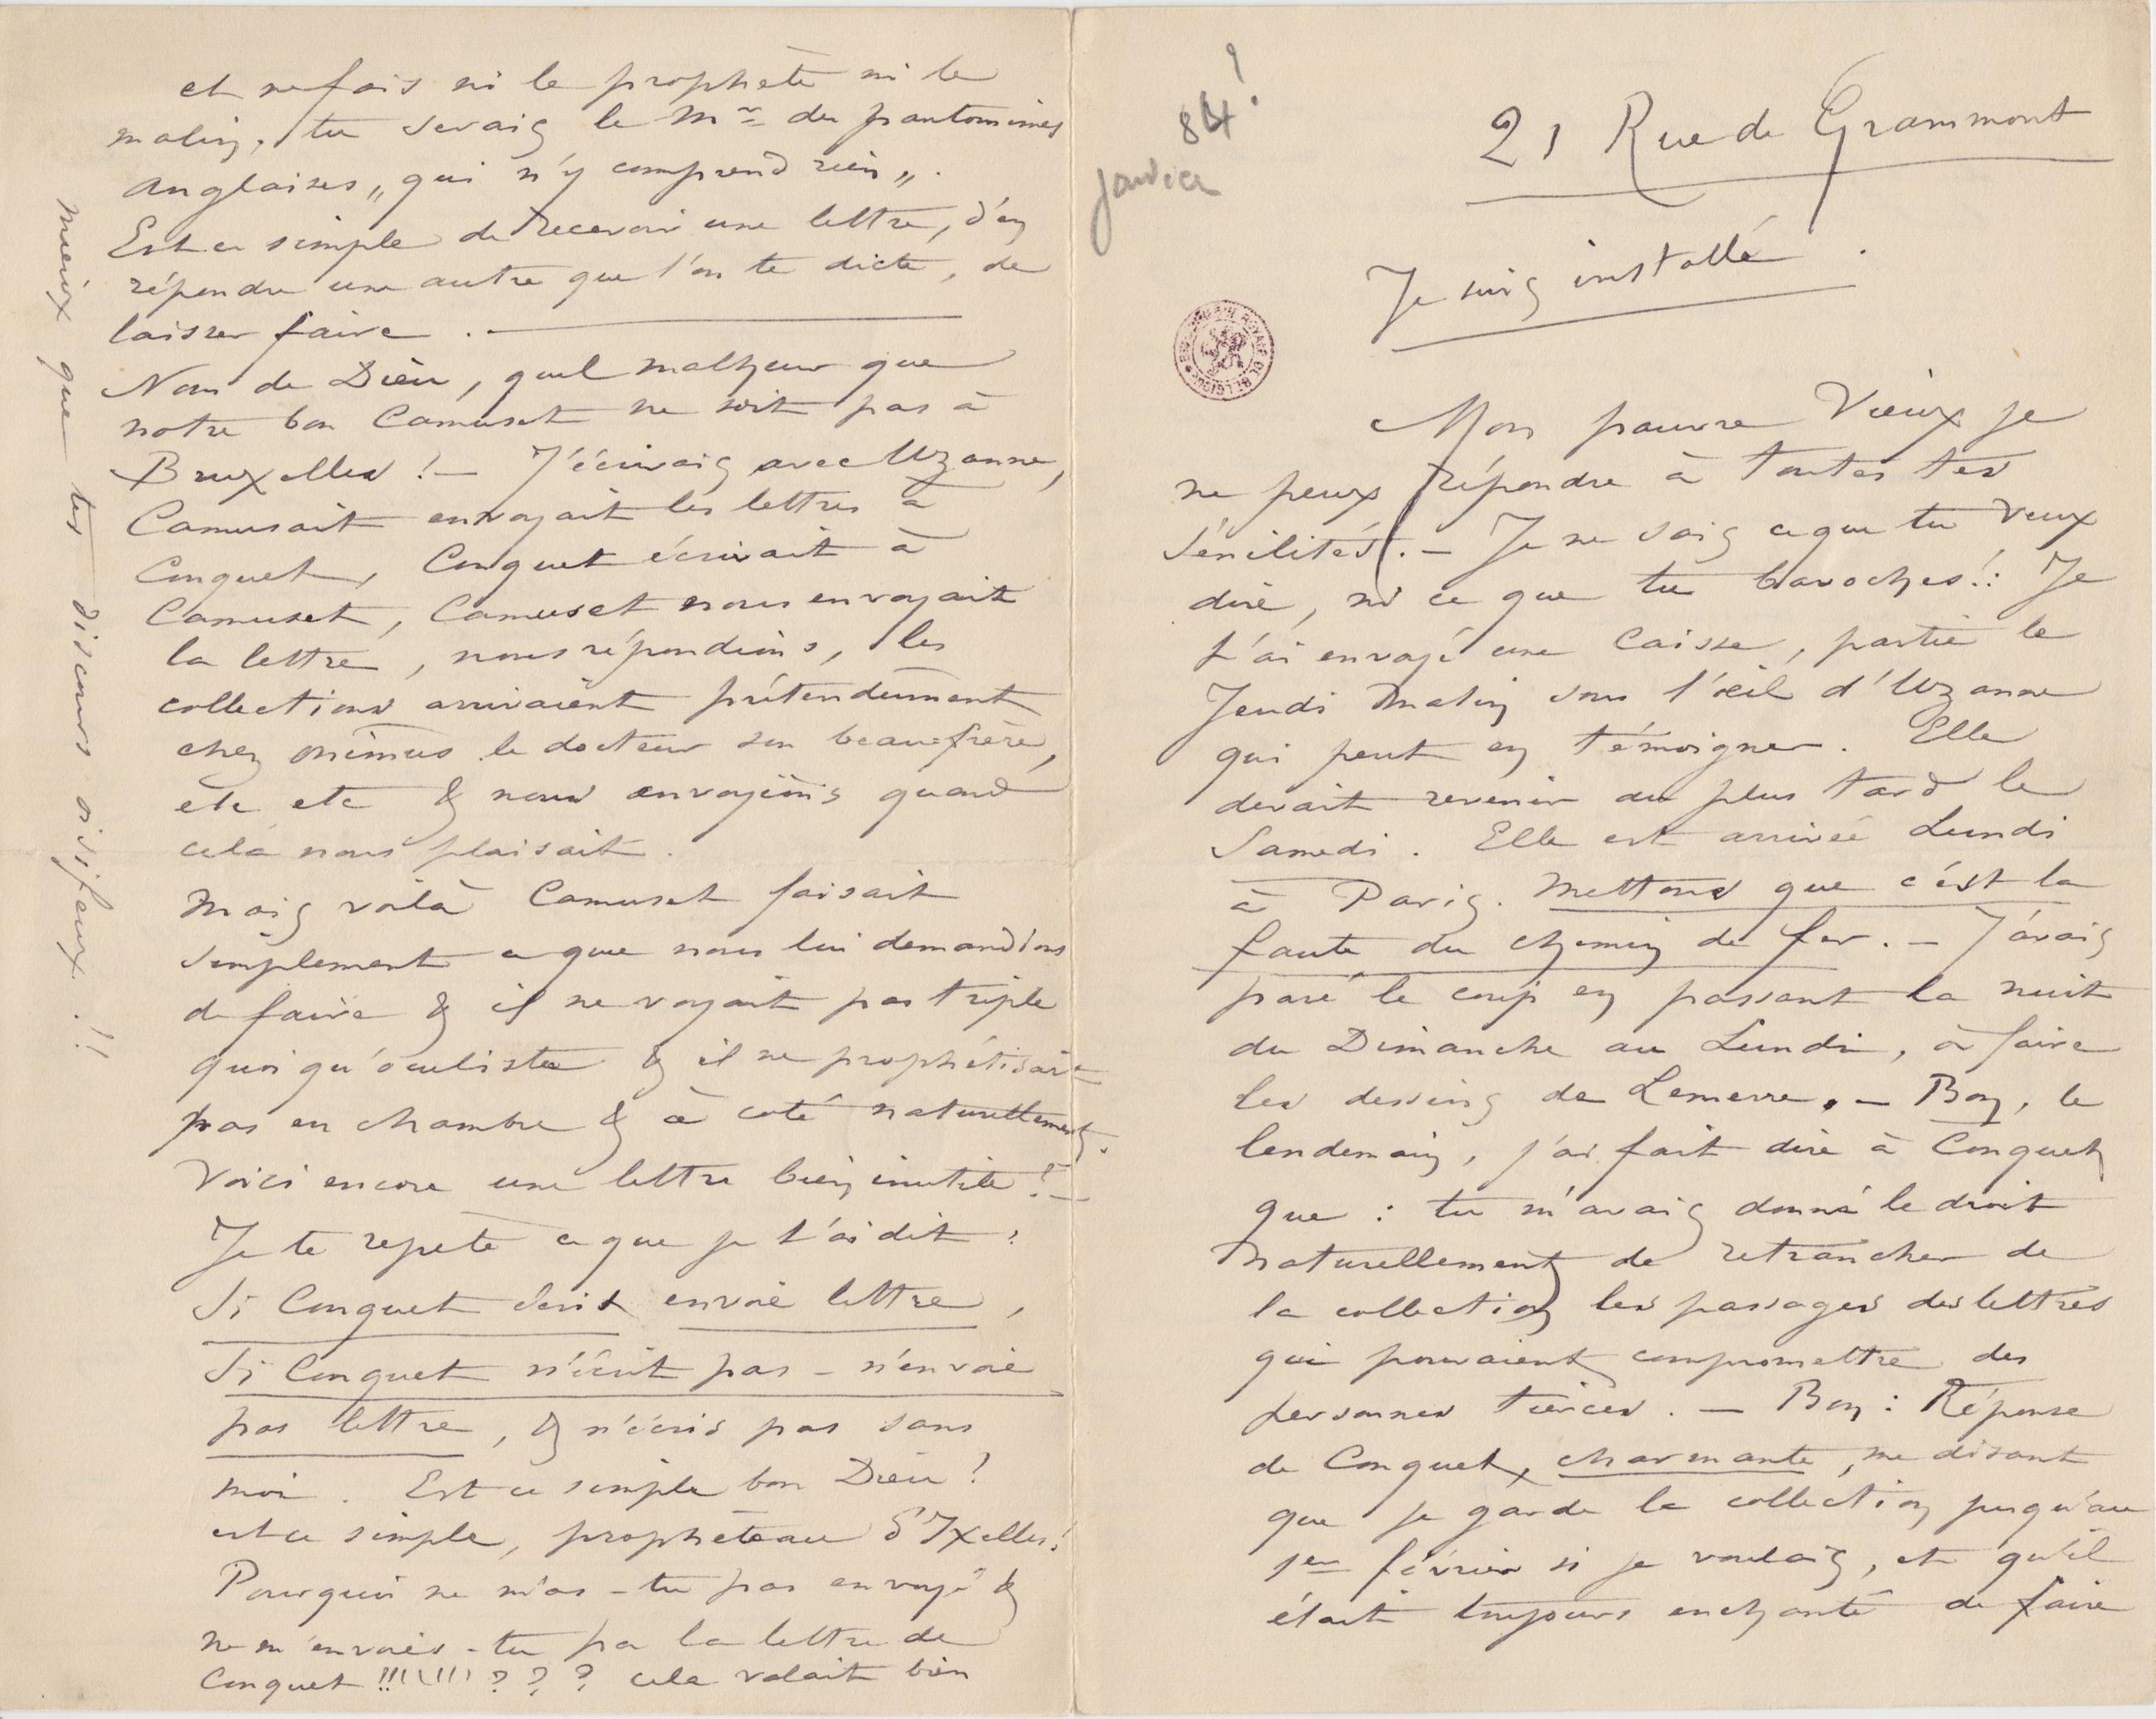 84?
Janvier
21 Rue de Grammont
Je suis installé.
Mon pauvre Vieux je
ne peux répondre à toutes tes
sénilités. — Je ne sais ce que tu veux
dire, ni ce que tu bavoches!: Je
t'ai envoyé une Caisse, partie le
Jeudi matin sous l'œil d'Uzanne
qui peut en témoigner. Elle
devait revenir au plus tard le
Samedi. Elle est arrivée Lundi
à Paris. Mettons que c'est la
faute du chemin de fer. — J'avais
paré le coup en passant la nuit
du Dimanche au Lundi, à faire
les dessins de Lemerre. — Bon, le
lendemain, j'ai fait dire à Conquet
que : tu m'avais donné le droit
naturellement de retrancher de
la collection les passages des lettres
qui pouvaient compromettre des
personnes tierces. — Bon : Réponse
de Conquet, charmante, me disant
que je garde la collection jusqu'au
1er février si je voulais, et qu'il
était toujours enchanté de faire
et ne fais ni le prophète ni le
malin, tu serais le Mr des pantomimes
anglaises „qui n'y comprend rien„.
Est ce simple de recevoir une lettre, d'en
répondre une autre que l'on te dicte, de
laisser faire. —
Nom de Dieu, quel malheur que
notre bon Camuset ne soit pas à
Bruxelles! — J'écrivais avec Uzanne,
Camusait envoyait les lettres à
Conquet, Conquet écrivait à
Camuset, Camuset nous envoyait
la lettre, nous répondions, les
collections arrivaient prétendument
chez Onimus le docteur son beau-frère,
etc etc & nous envoyions quand
cela nous plaisait.
Mais voilà Camuset faisait
simplement ce que nous lui demandions
de faire & il ne voyait pas triple
quoi qu'oculiste & il ne prophétisait
pas en chambre & à coté naturellement.
Voici encore une lettre bien inutile! —
Je te repete ce que je t'ai dit :
Si Conquet écrit envoie lettre,
Si Conquet n'écrit pas — n'envoie
pas lettre, & n'écris pas sans
moi. Est ce simple bon Dieu!
est ce simple, prophéteau d'Ixelles!
Pourquoi ne m'as-tu pas envoyé &
ne m'envoies-tu pas la lettre de
Conquet !!!!!!!! ? ? ? cela valait bien
mieux que tes discours oisifeux.!!